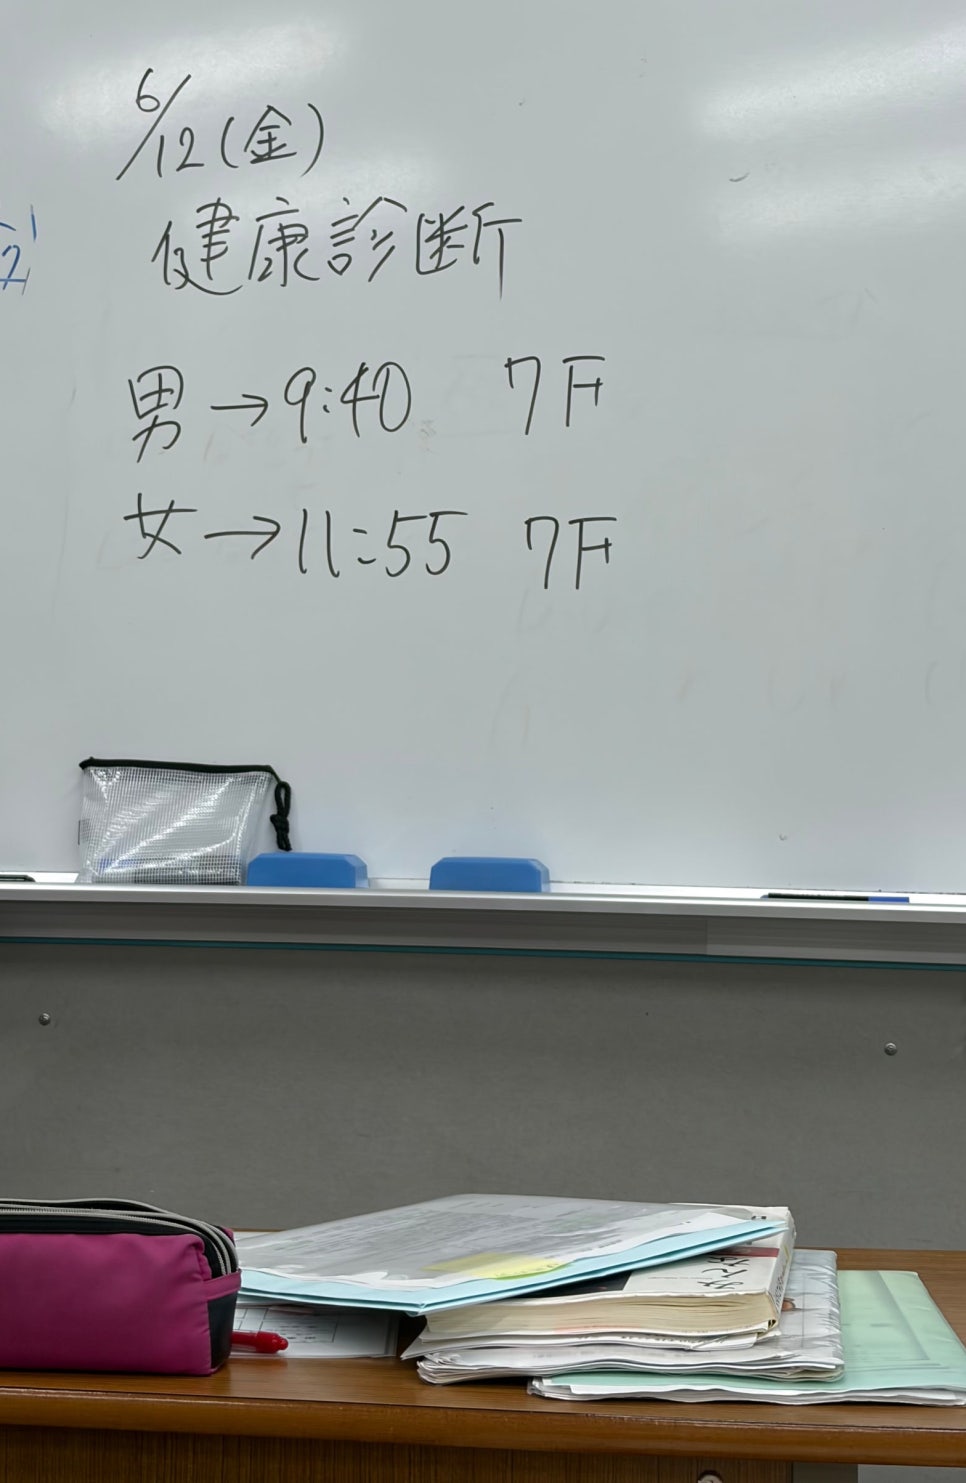 6/12(金)
健康診断
男→9:40 7F
女→11:55 7F